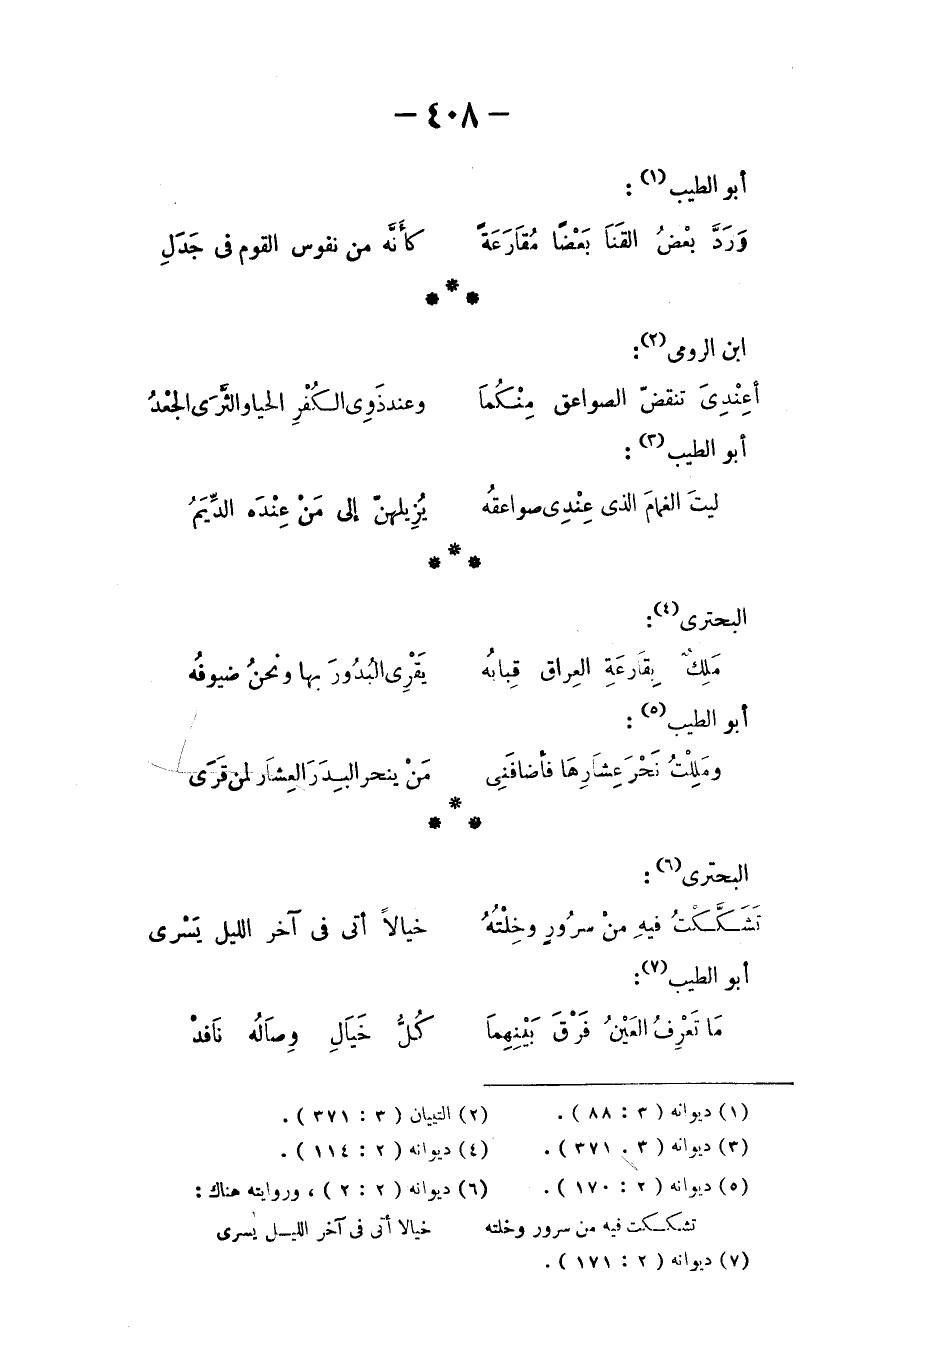 — ٤٠٨ —
أبو الطيب (١) :
وَرَدَّ بعْضُ القَنَا بَعْضًا مُقارَعَةً كأَنَّه من نفوس القوم فى جَدَلِ
* * *
ابن الرومى (٢) :
أعِنْدِىَ تنقضّ الصواعق مِنْـكُمَا وعند ذَوِى الـكُفْرِ الحيا والثَّرَى الجَعْدُ
أبو الطيب (٣) :
ليتَ الغمامَ الذى عِنْدِى صواعقهُ يُزِيلهنّ إلى مَنْ عِنْدَه الدِّيَمُ
* * *
البحترى (٤) :
مَلِكٌ بِقَارعَةِ العِراق قِبابُه يَقْرِى البُدُورَ بها ونحنُ ضيوفُه
أبو الطيب (٥) :
ومَلِلْتُ نَحْرَ عِشارِهَا فأضافَنِى مَنْ ينحر البِدَرَ العِشَار لمن قَرَى
* * *
البحترى (٦) :
تَشَـكَّـكْتُ فيهِ منْ سرُورٍ وخِلْتُهُ خيالاً أتى فى آخر الليل يَسْرى
أبو الطيب (٧) :
مَا تَعْرِفُ العَيْنُ فَرْقَ بَيْنِهِمَا كُلُّ خَيَالِ وِصَالُه نَافدْ
(١) ديوانه ( ٣ : ٨٨ ) . (٢) التبيان ( ٣ : ٣٧١ ) .
(٣) ديوانه ( ٣ . ٣٧١ ) . (٤) ديوانه ( ٢ : ١١٤ ) .
(٥) ديوانه ( ٢ : ١٧٠ ) . (٦) ديوانه ( ٢ : ٢ ) ، وروايته هناك :
تشكـكت فيه من سرور وخلته خيالا أتى فى آخر الليـل يسرى
(٧) ديوانه ( ٢ : ١٧١ ) .